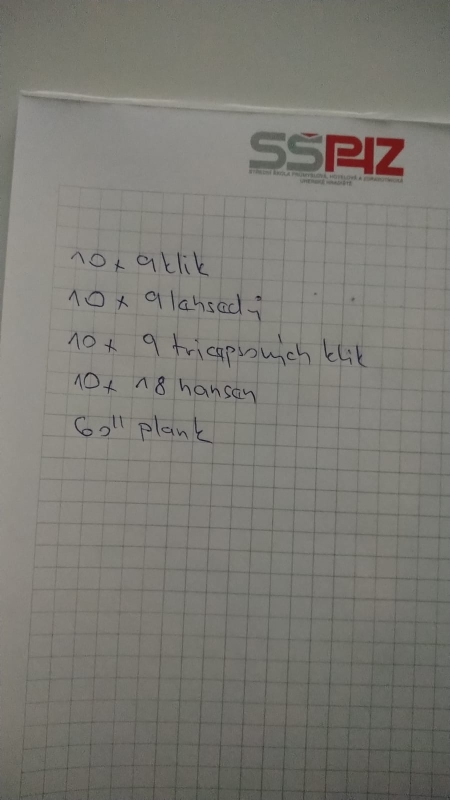 SŠPHZ
STŘEDNÍ ŠKOLA PRŮMYSLOVÁ, HOTELOVÁ A ZDRAVOTNICKÁ
UHERSKÉ HRADIŠTĚ
10x 9 klik
10x 9
10x 9 klik
10x 18 hansen
60" plank